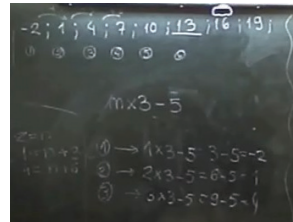 -2 ; 1 ; 4 ; 7 ; 10 ; 13 ; 16 ; 19 ;
① ② ③ ④ ⑤ ⑥
n×3-5
① → 1×3-5=3-5=-2
② → 2×3-5=6-5=1
③ → 3×3-5=9-5=4